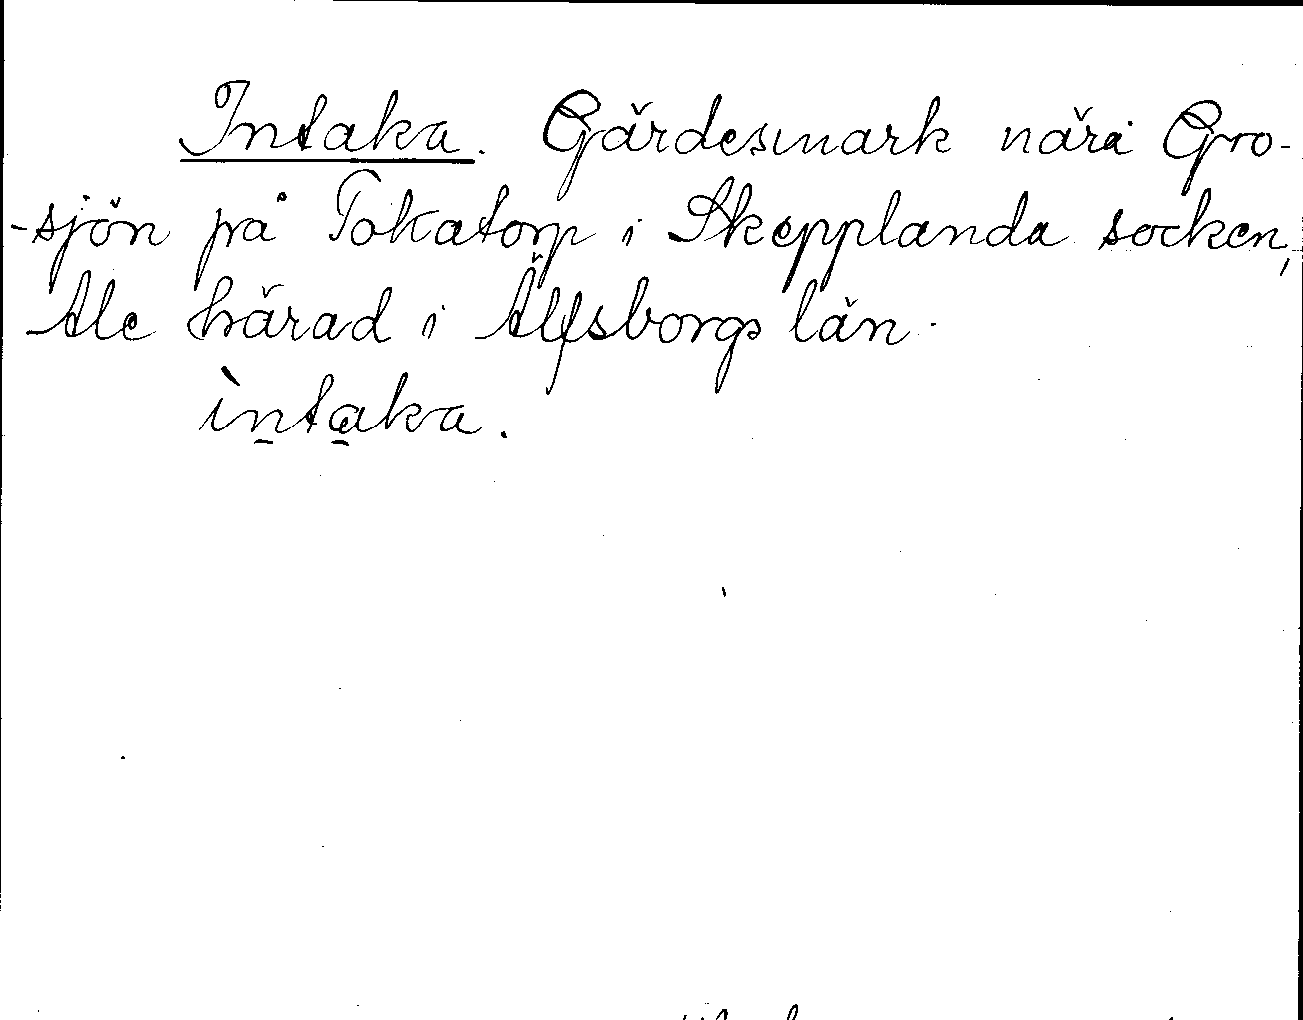 Intaka. Gärdesmark nära Gro-
-sjön på Tokatorp i Skepplanda socken,
Ale härad i Älfsborgs län.
ìn̠ta̠ka.